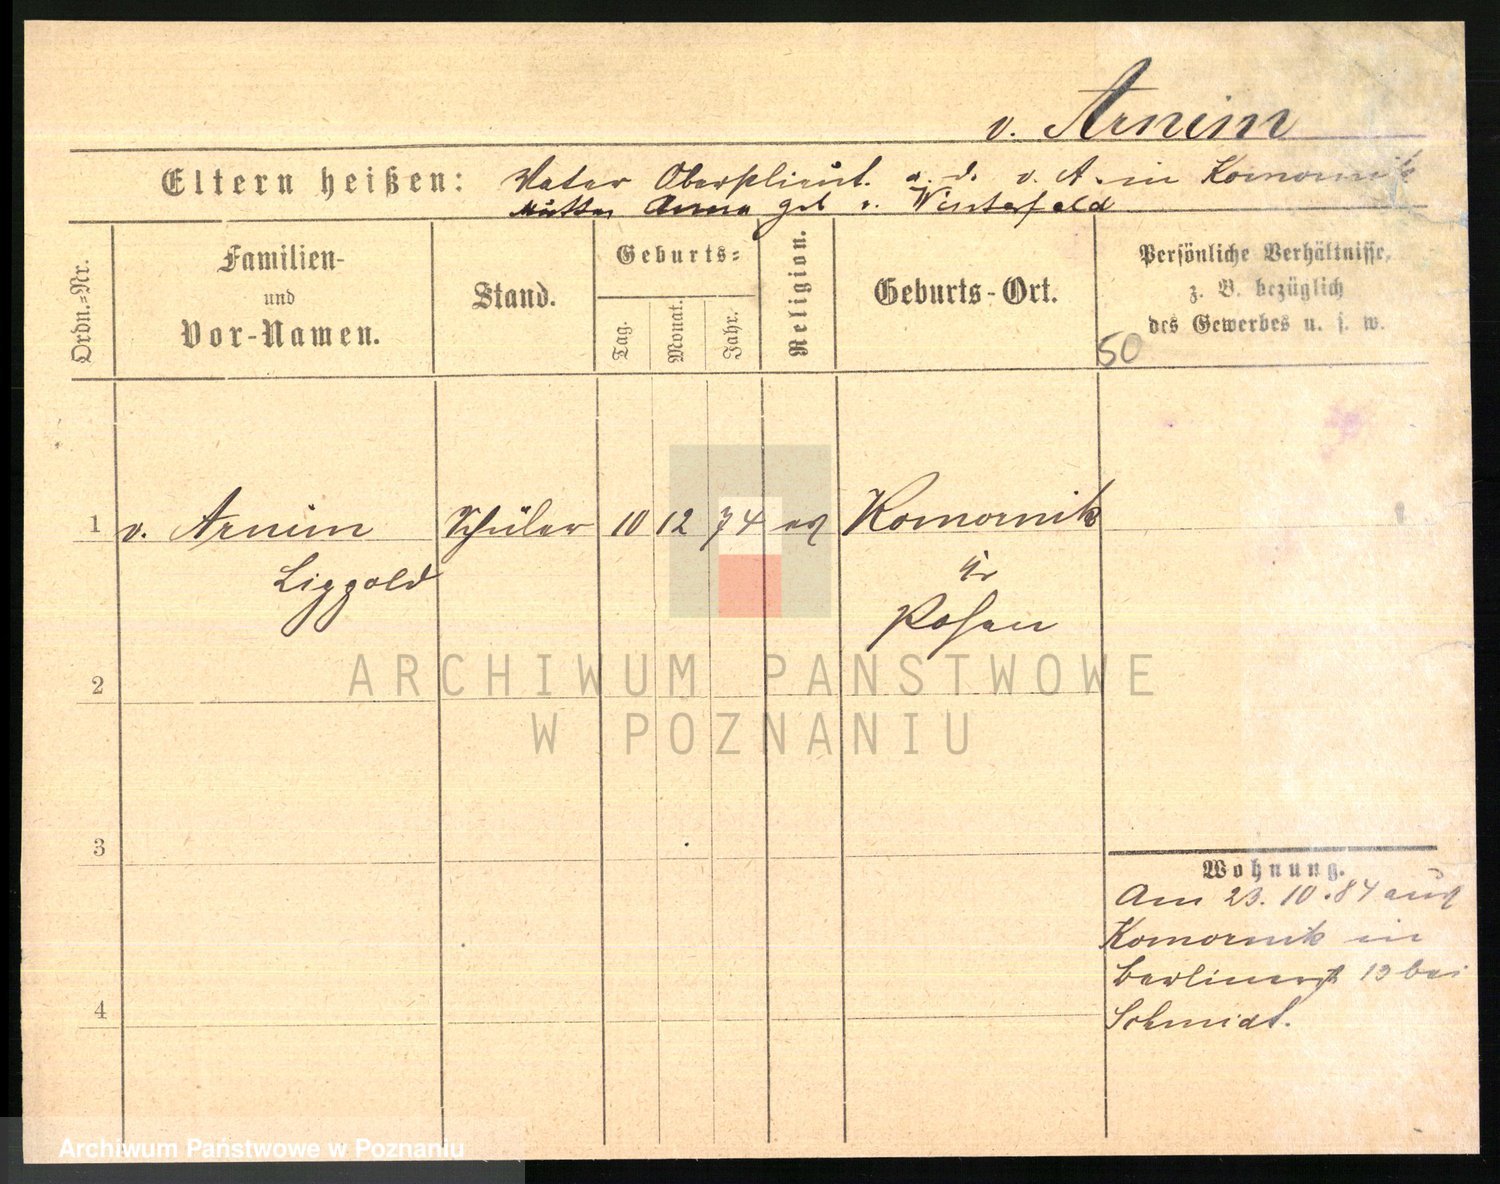 v. Arnim
Eltern heißen: Vater Oberstlieut. a. d. v. A. in Komornik
Mutter Anna geb v. Winterfeld
Ordn.=Nr.
Familien-
und
Vor-Namen.
Stand.
Geburts=
Tag.
Monat.
Jahr.
Religion.
Geburts-Ort.
Persönliche Verhältnisse,
z. B. bezüglich
des Gewerbes u. s. w.
50
1 v. Arnim Schüler 10 12 74 ev Komornik
Kr
Lippold Posen
2
3
4
Wohnung.
Am 23. 10. 84 aus
Komornik in
Berlinerst 19 bei
Schmidt.
ARCHIWUM PAŃSTWOWE
W POZNANIU
Archiwum Państwowe w Poznaniu